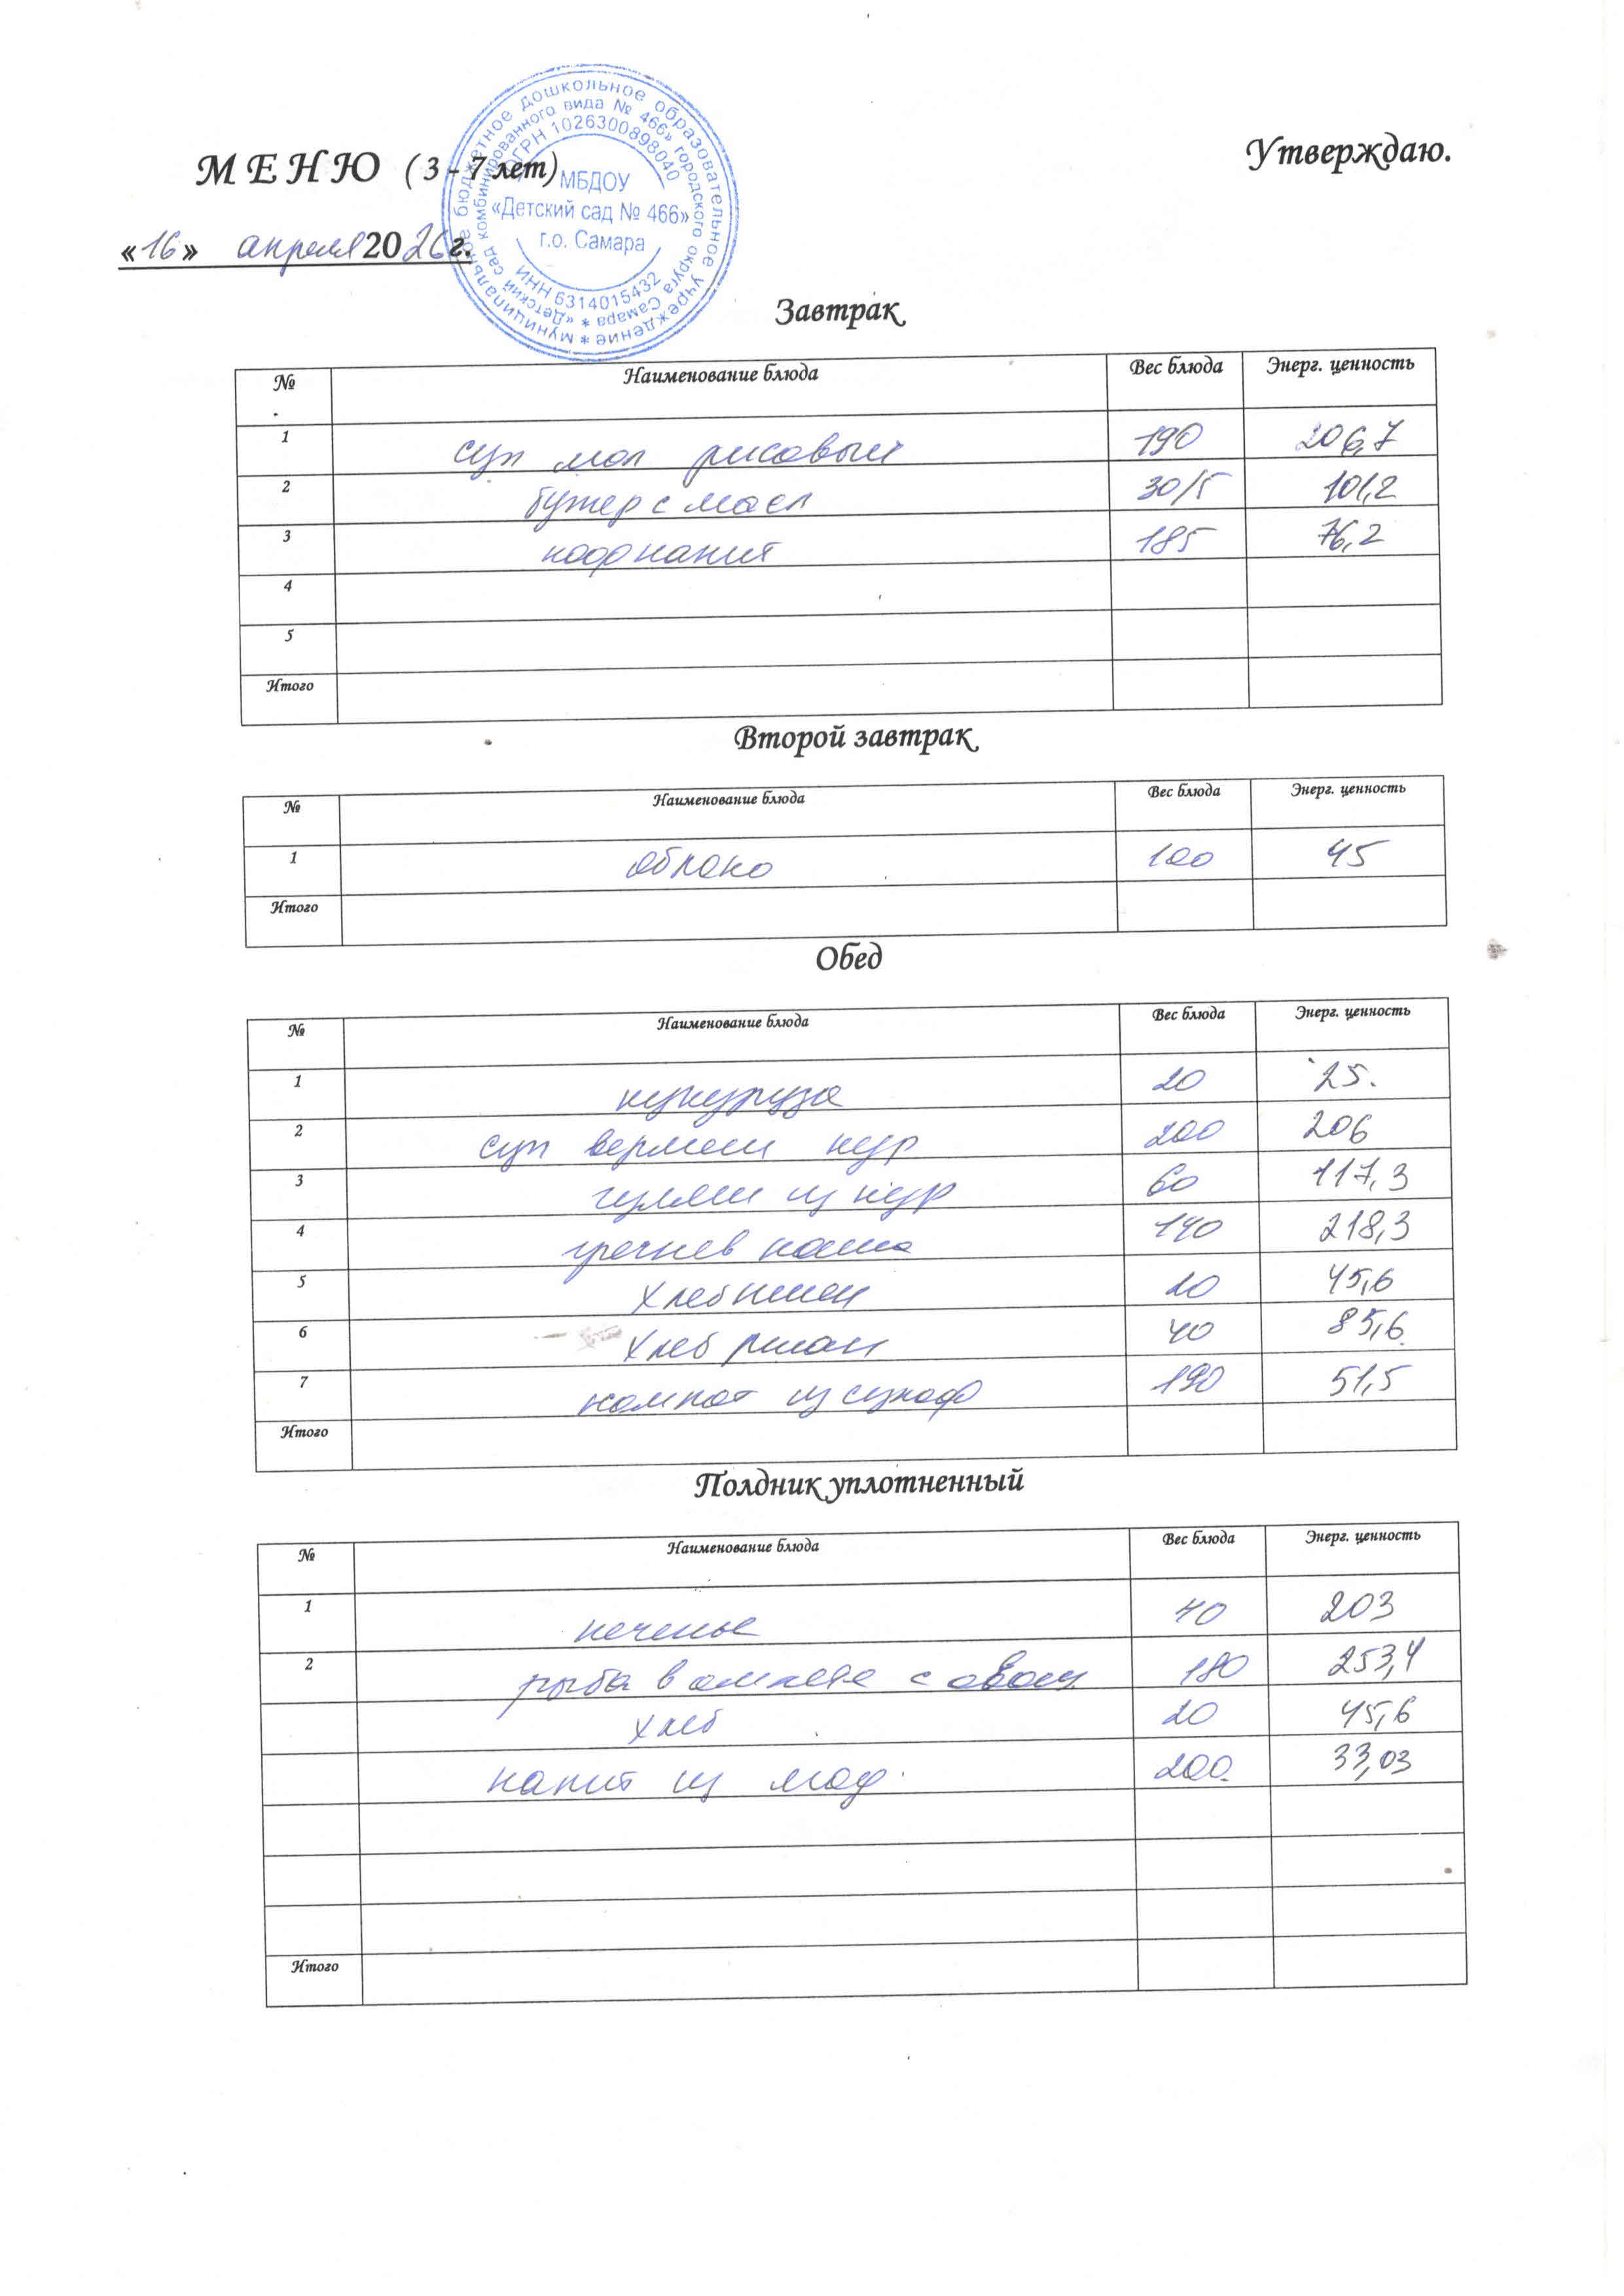 МЕНЮ (3 - 7 лет)
Утверждаю.
«16» апреля 2026 г.
муниципальное бюджетное дошкольное образовательное учреждение *
«Детский сад комбинированного вида № 466» городского округа Самара *
ОГРН 1026300898040
МБДОУ
«Детский сад № 466»
г.о. Самара
ИНН 6314015432
Завтрак
№ Наименование блюда Вес блюда Энерг. ценность
1 суп мол рисовый 190 206,7
2 бутер с масл 30/5 101,2
3 коф напит 185 76,2
4
5
Итого
Второй завтрак
№ Наименование блюда Вес блюда Энерг. ценность
1 яблоко 100 45
Итого
Обед
№ Наименование блюда Вес блюда Энерг. ценность
1 кукуруза 20 25.
2 суп вермеш кур 200 206
3 гуляш из кур 60 117,3
4 гречнев каша 140 218,3
5 хлеб пшен 20 45,6
6 хлеб ржан 40 85,6
7 компот из сухоф 190 51,5
Итого
Полдник уплотненный
№ Наименование блюда Вес блюда Энерг. ценность
1 печенье 40 203
2 рыба в омлете с овощ 180 253,4
хлеб 20 45,6
напит из 200 33,03
Итого